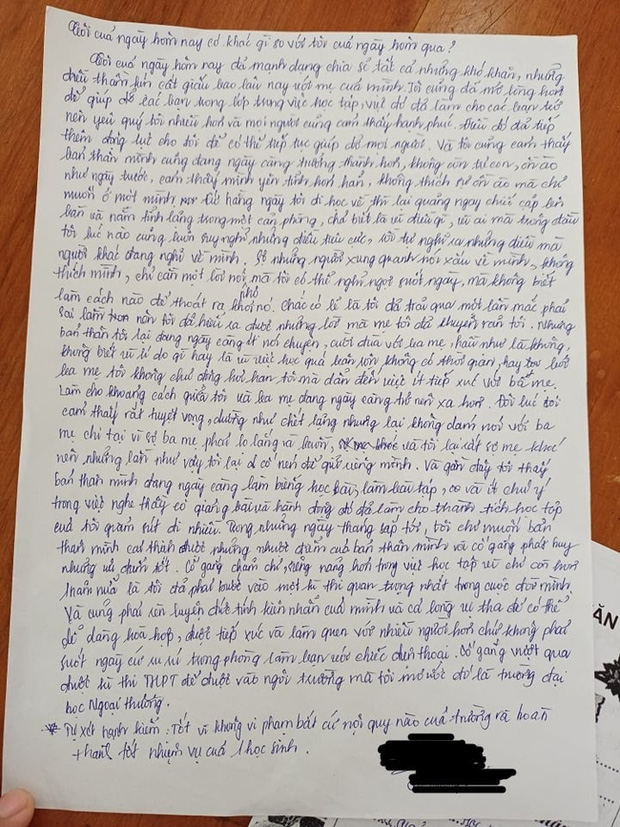 Tôi của ngày hôm nay có khác gì so với tôi của ngày hôm qua?
Tôi của ngày hôm nay đã mạnh dạng chia sẻ tất cả những khó khăn, những
điều thầm kín cất giấu bao lâu nay với mẹ của mình. Tôi cũng đã mở lòng hơn
để giúp đỡ các bạn trong lớp trong việc học tập, việc đó đã làm cho các bạn trở
nên yêu quý tôi nhiều hơn và mọi người cũng cảm thấy hạnh phúc. Điều đó đã tiếp
thêm động lực cho tôi để có thể tiếp tục giúp đỡ mọi người. Và tôi cũng cảm thấy
bản thân mình cũng đang ngày càng trưởng thành hơn, không còn trẻ con, ồn ào
như ngày trước, cảm thấy mình yên tĩnh hơn hẳn, không thích sự ồn ào mà chỉ
muốn ở một mình hàng ngày tôi đi học về thì lại quăng ngay chiếc cặp lên
bàn và nằm tĩnh lặng trong một căn phòng, chả biết là vì điều gì, vì ai mà trong đầu
tôi lúc nào cũng luôn suy nghĩ những điều tiêu cực, rồi tự nghĩ ra những điều mà
người khác đang nghĩ về mình. Sợ những người xung quanh nói xấu về mình, không
thích mình, chỉ cần một lời nói mà tôi có thể nghĩ ngợi suốt ngày, mà không biết
làm cách nào để thoát ra khỏi nó. Chắc có lẽ là tôi đã trải qua một lần mắc phải
sai lầm nên tôi đã hiểu ra được những lời mà mẹ tôi đã khuyên răn tôi. Nhưng
bản thân tôi lại đang ngày càng ít nói chuyện, cười đùa với ba mẹ, hầu như là không,
không biết vì lí do gì hay là vì việc học quá bận rộn không có thời gian, hay
ba mẹ tôi không chủ động hỏi han tôi mà dẫn đến việc ít tiếp xúc với bố mẹ.
Làm cho khoảng cách giữa tôi và ba mẹ đang ngày càng trở nên xa hơn. Đôi lúc tôi
cảm thấy rất tuyệt vọng, dường như chết lặng nhưng lại không dám nói với ba
mẹ chỉ tại vì sợ ba mẹ phải lo lắng và buồn, và tôi lại rất sợ mẹ khóc
nên những lần như vậy tôi lại cố nén để giữ riêng mình. Và gần đây tôi thấy
bản thân mình đang ngày càng làm biếng học bài, làm bài tập, và ít chú ý
trong việc nghe thầy cô giảng bài và hành động đó đã làm cho thành tích học tập
của tôi giảm sút đi nhiều. Trong những ngày tháng sắp tới, tôi chỉ muốn bản
thân mình cải thiện được những nhược điểm của bản thân mình và cố gắng phát huy
những ưu điểm tốt. Cố gắng chăm chỉ, siêng năng hơn trong việc học tập vì chỉ còn hơn
1 năm nữa là tôi đã phải bước vào một kì thi quan trọng nhất trong cuộc đời mình.
Và cũng phải rèn luyện đức tính kiên nhẫn của mình và cả lòng vị tha để có thể
dễ dàng hoà hợp, được tiếp xúc và làm quen với nhiều người hơn chứ không phải
suốt ngày cứ ru rú trong phòng làm bạn với chiếc điện thoại. Cố gắng vượt qua
được kì thi THPT để được vào ngôi trường mà tôi mơ ước đó là trường đại
học Ngoại thương.
* Tự xét hạnh kiểm: Tốt vì không vi phạm bất cứ nội quy nào của trường và hoàn
thành tốt nhiệm vụ của 1 học sinh.
ĂN